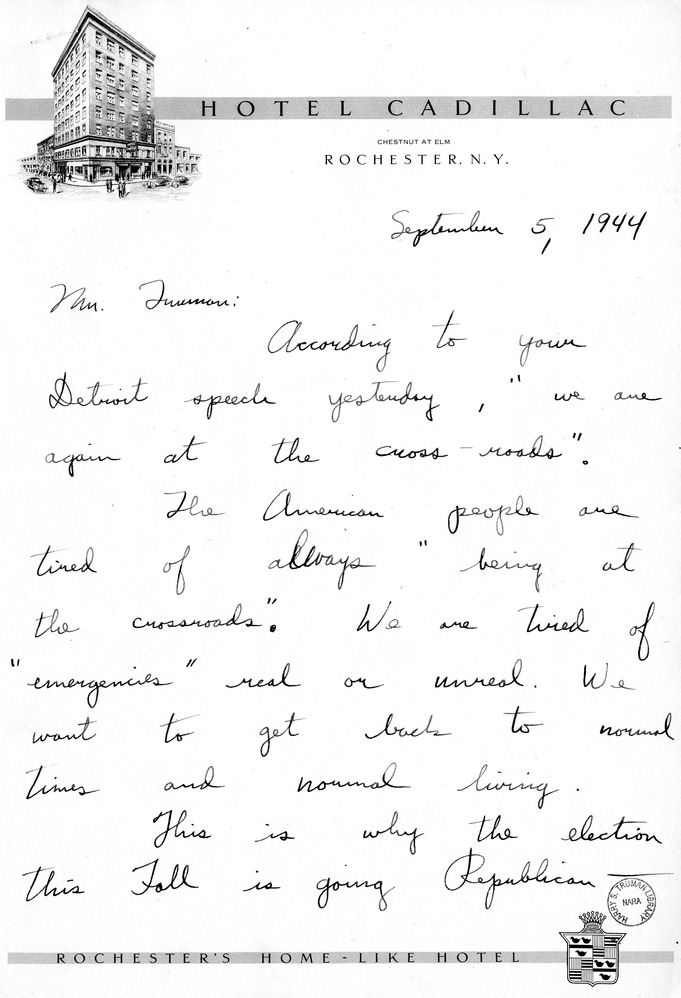 HOTEL CADILLAC
CHESTNUT AT ELM
ROCHESTER, N.Y.
September 5, 1944
Mr. Truman:
According to your
Detroit speech yesterday, "we are
again at the cross-roads".
The American people are
tired of allways "being at
the crossroads". We are tired of
"emergencies" real or unreal. We
want to get back to normal
times and normal living.
This is why the election
this Fall is going Republican—
HARRY S. TRUMAN LIBRARY
NARA
ROCHESTER'S HOME-LIKE HOTEL